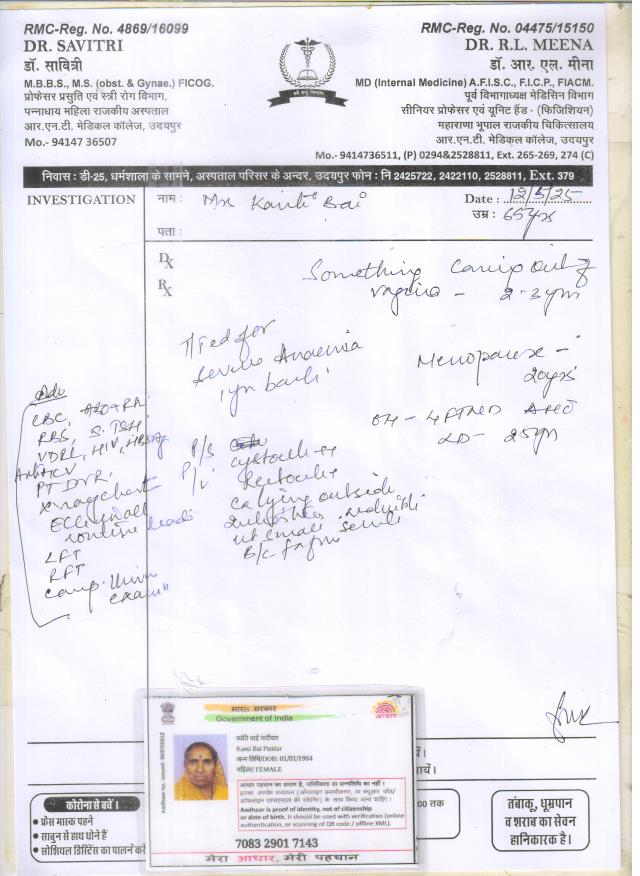 RMC-Reg. No. 4869/16099
DR. SAVITRI
डॉ. सावित्री
M.B.B.S., M.S. (obst. & Gynae.) FICOG.
प्रोफेसर प्रसुति एवं स्त्री रोग विभाग,
पन्नाधाय महिला राजकीय अस्पताल
आर.एन.टी. मेडिकल कॉलेज, उदयपुर
Mo.- 94147 36507
RMC-Reg. No. 04475/15150
DR. R.L. MEENA
डॉ. आर. एल. मीना
MD (Internal Medicine) A.F.I.S.C., F.I.C.P., FIACM.
पूर्व विभागाध्यक्ष मेडिसिन विभाग
सीनियर प्रोफेसर एवं यूनिट हैंड - (फिजिशियन)
महाराणा भूपाल राजकीय चिकित्सालय
आर.एन.टी. मेडिकल कॉलेज, उदयपुर
Mo.- 9414736511, (P) 0294&2528811, Ext. 265-269, 274 (C)
निवास : डी-25, धर्मशाला के सामने, अस्पताल परिसर के अन्दर, उदयपुर फोन : नि 2425722, 2422110, 2528811, Ext. 379
INVESTIGATION
नाम : Mrs Kanti Bai
Date : 12/5/25
उम्र : 65yrs
पता :
Dx
Rx
Something coming out of
vagina - 2-3 yrs
T/t ed for
severe Anaemia
1 yr back
Menopause -
20yrs
OH - 4 FTND
LD - 25yrs
Adv
CBC, ABO & Rh
RBS, S. TSH
VDRL, HIV, HBsAg
Anti HCV
PT INR,
X ray chest
ECG in all
leads
LFT
RFT
Comp. Urine
exam
P/S
cystocele
P/V
Rectocele
Cx lying outside
introitus reducible
ut small senile
B/L fx free
भारत सरकार
Government of India
आधार
Aadhaar no. issued: 06/07/2012
कांति बाई पाटीदार
Kanti Bai Patidar
जन्म तिथि/DOB: 01/01/1964
महिला/ FEMALE
आधार पहचान का प्रमाण है, नागरिकता या जन्मतिथि का नहीं ।
Aadhaar is proof of identity, not of citizenship
or date of birth. It should be used with verification (online
authentication, or scanning of QR code / offline XML).
7083 2901 7143
मेरा आधार, मेरी पहचान
कोरोना से बचें ।
• फ्रेस मास्क पहने
• साबुन से हाथ धोने हैं
• सोशियल डिस्टेंस का पालन करें
00 तक
तंबाकू, धूम्रपान
व शराब का सेवन
हानिकारक है।